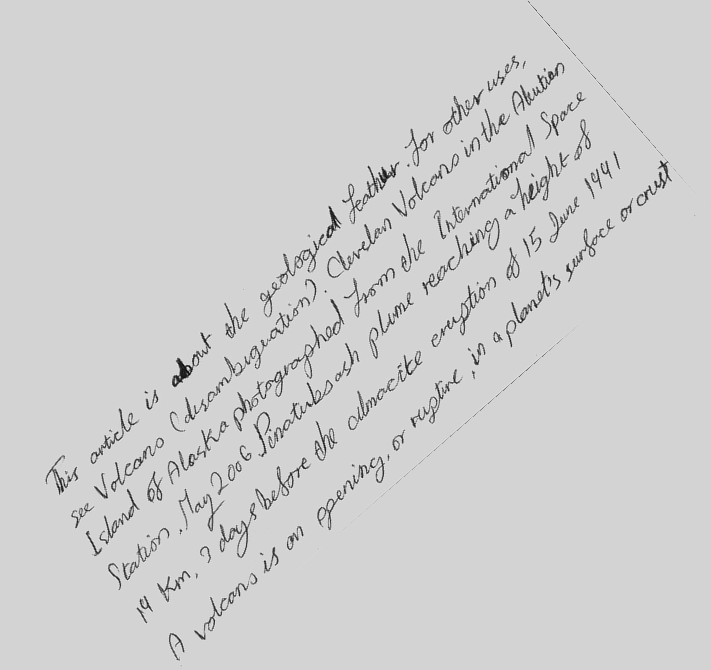 This article is about the geological feather. For other uses,
see Volcano (disambiguation). Clevelan Volcano in the Aleutian
Island of Alaska photographed from the International Space
Station, May 2006 Pinatubo ash plume reaching a height of
19 Km, 3 days before the climacite eruption of 15 June 1991
A volcano is an opening, or rupture, in a planet's surface or crust